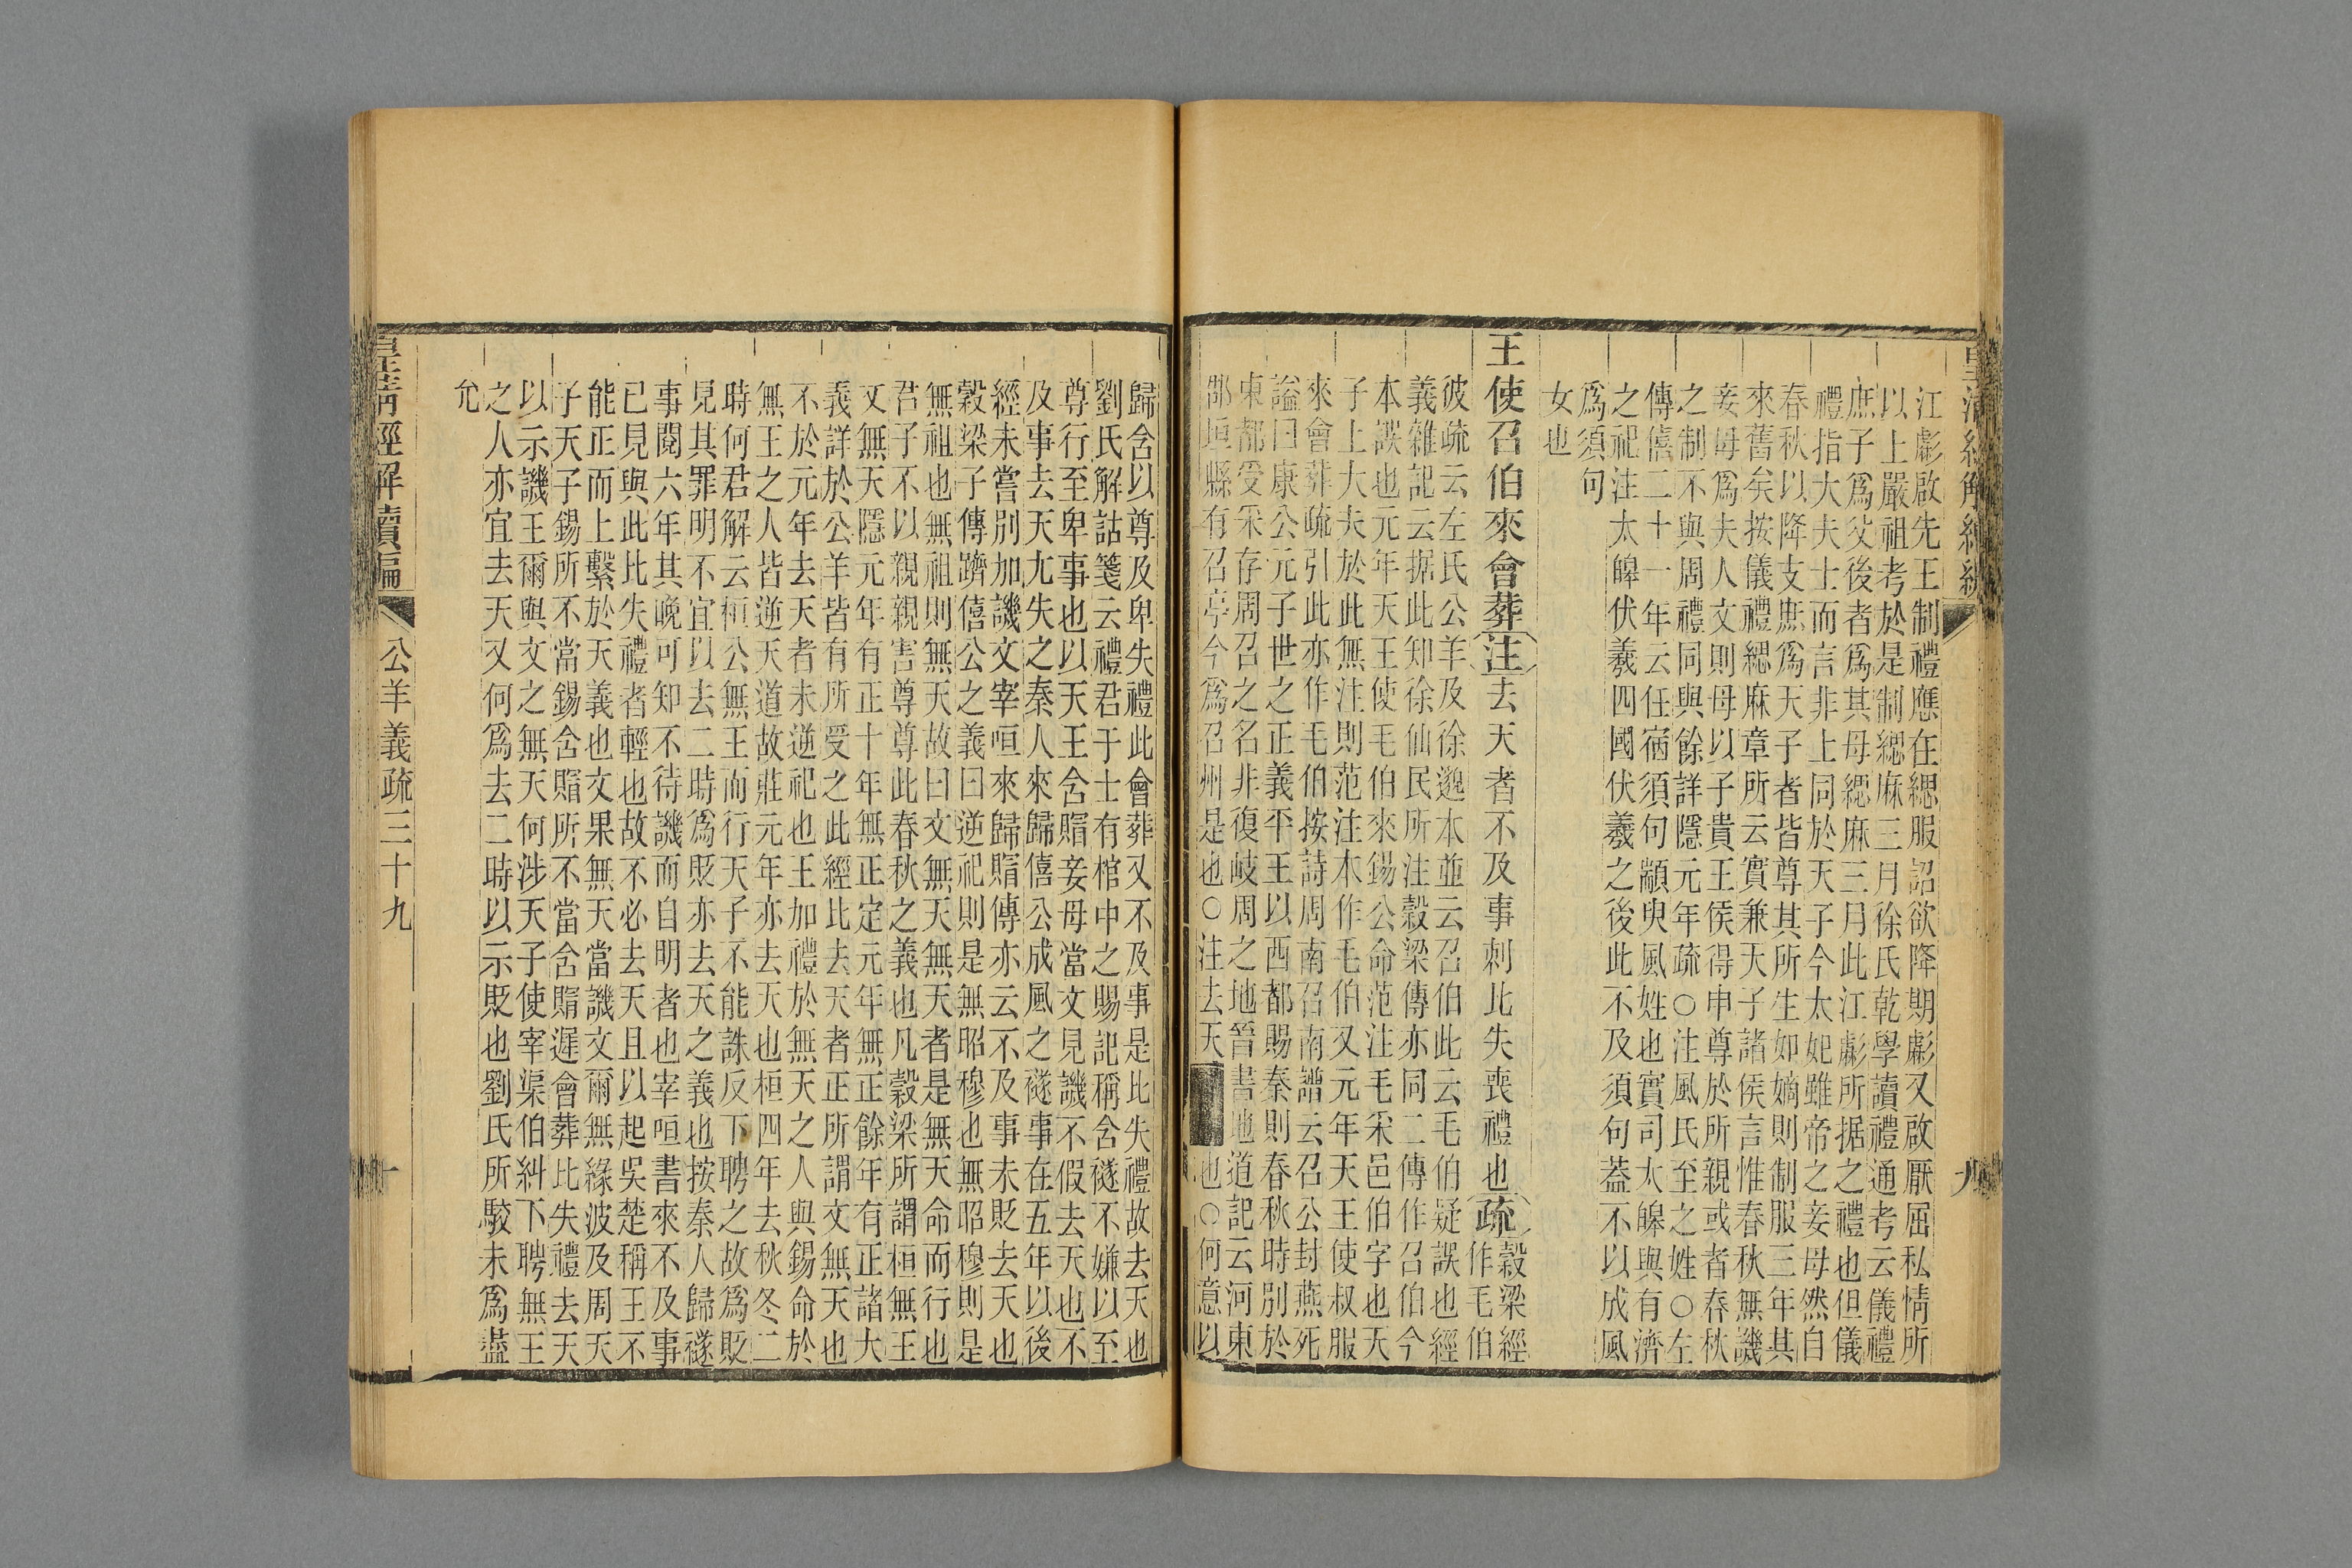 江彪啟先王制禮應在緦服詔欲降期彪又啟厭屈私情所
以上嚴祖考於是制緦麻三月徐氏乾學讀禮通考云儀禮
庶子爲父後者爲其母緦麻三月此江彪所据之禮也但儀
禮指大夫士而言非上同於天子今太妃雖帝之妾母然自
春秋以降支庶爲天子者皆尊其所生如嫡則制服三年其
來舊矣按儀禮緦麻章所云實兼天子諸侯言惟春秋無譏
妾母爲夫人文則母以子貴王侯得申尊於所親或者春秋
之制不與周禮同與餘詳隱元年疏○注風氏至之姓○左
傳僖二十一年云任宿須句顓臾風姓也實司太皞與有濟
之祀注太皞伏羲四國伏羲之後此不及須句蓋不以成風
爲須句
女也
王使召伯來會葬注去天者不及事刺比失喪禮也疏穀梁經
作毛伯
彼疏云左氏公羊及徐邈本並云召伯此云毛伯疑誤也經
義雜記云据此知徐仙民所注穀梁傳亦同二傳作召伯今
本誤也元年天王使毛伯來錫公命范注毛采邑伯字也天
子上大夫於此無注則范注本作毛伯又元年天王使叔服
來會葬疏引此亦作毛伯按詩周南召南譜云召公封燕死
謚曰康公元子世之正義平王以西都賜秦則春秋時別於
東都受采存周召之名非復岐周之地晉書地道記云河東
郡垣縣有召亭今爲召州是也○注去天 也○何意以
歸含以尊及卑失禮此會葬又不及事是比失禮故去天也
劉氏解詁箋云禮君于士有棺中之賜記稱含襚不嫌以至
尊行至卑事也以天王含賵妾母當文見譏不假去天也不
及事去天尢失之秦人來歸僖公成風之襚事在五年以後
經未嘗別加譏文宰咺來歸賵傳亦云不及事未貶去天也
穀梁子傳躋僖公之義曰逆祀則是無昭穆也無昭穆則是
無祖也無祖則無天故曰文無天無天者是無天命而行也
君子不以親親害尊尊此春秋之義也凡穀梁所謂桓無王
文無天隱元年有正十年無正定元年無正餘年有正諸大
義詳於公羊皆有所受之此經比去天者正所謂文無天也
不於元年去天者未逆祀也王加禮於無天之人與錫命於
無王之人皆逆天道故莊元年亦去天也桓四年去秋冬二
時何君解云桓公無王而行天子不能誅反下聘之故爲貶
見其罪明不宜以去二時爲貶亦去天之義也按秦人歸襚
事閱六年其晚可知不待譏而自明者也宰咺書來不及事
已見與此比失禮者輕也故不必去天且以起吳楚稱王不
能正而上繫於天義也文果無天當譏文爾無緣波及周天
子天子錫所不當錫含賵所不當含賵遲會葬比失禮去天
以示譏王爾與文之無天何涉天子使宰渠伯糾下聘無王
之人亦宜去天又何爲去二時以示貶也劉氏所駮未爲盡
允
皇清經解續編
公羊義疏三十九
十
皇清經解續編
九